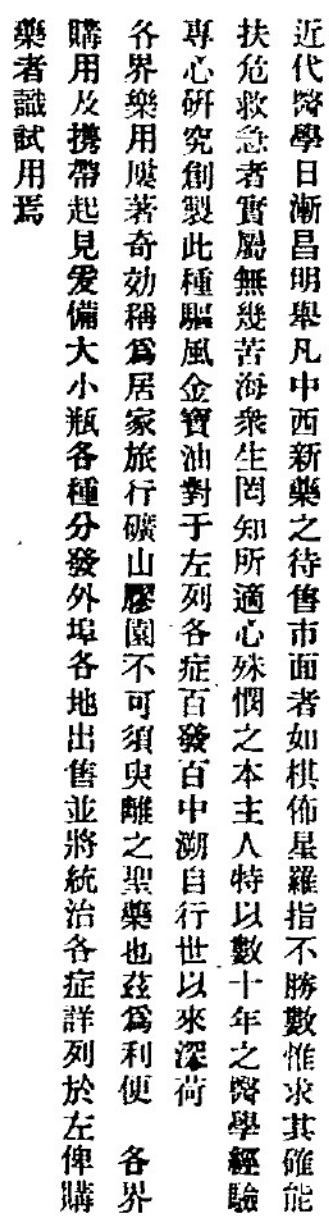 近代醫學日漸昌明舉凡中西新藥之待售市面者如棋佈星羅指不勝數惟求其確能
扶危救急者實屬無幾苦海衆生罔知所適心殊憫之本主人特以數十年之醫學經驗
專心研究創製此種驅風金寶油對于左列各症百發百中溯自行世以來深荷
各界樂用屢著奇効稱爲居家旅行礦山膠園不可須臾離之聖藥也茲爲利便　各界
購用及携帶起見爰備大小瓶各種分發外埠各地出售並將統治各症詳列於左俾購
藥者識試用焉